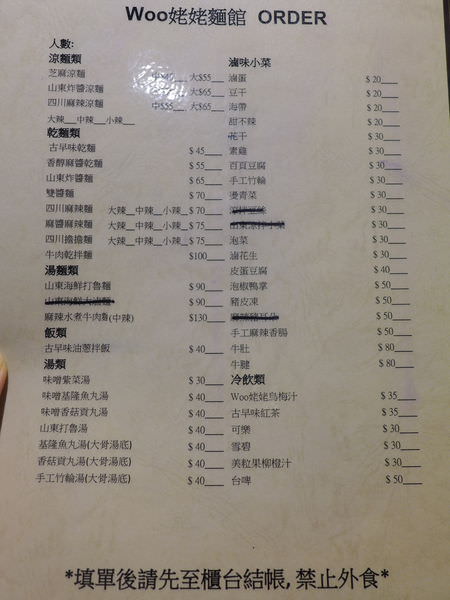 Woo姥姥麵館 ORDER
人數:
涼麵類
芝麻涼麵 大$55__
山東炸醬涼麵 大$65__
四川麻辣涼麵 中$55__ 大$65__
大辣__中辣__小辣__
乾麵類
古早味乾麵 $45____
香醇麻醬乾麵 $55____
山東炸醬麵 $65____
雙醬麵 $70____
四川麻辣麵 大辣__中辣__小辣__ $70____
麻醬麻辣麵 大辣__中辣__小辣__ $75____
四川擔擔麵 大辣__中辣__小辣__ $75____
牛肉乾拌麵 $100____
湯麵類
山東海鮮打魯麵 $90____
山東海鮮大滷麵 $90____
麻辣水煮牛肉麵(中辣) $130____
飯類
古早味油蔥拌飯 $40____
湯類
味噌紫菜湯 $30____
味噌基隆魚丸湯 $40____
味噌香菇貢丸湯 $40____
山東打魯湯 $40____
基隆魚丸湯(大骨湯底) $40____
香菇貢丸湯(大骨湯底) $40____
手工竹輪湯(大骨湯底) $40____
滷味小菜
滷蛋 $20____
豆干 $20____
海帶 $20____
甜不辣 $20____
花干 $30____
素雞 $30____
百頁豆腐 $30____
手工竹輪 $30____
燙青菜 $30____
$30____
山東涼拌小菜 $30____
泡菜 $30____
滷花生 $30____
皮蛋豆腐 $40____
泡椒鴨掌 $50____
豬皮凍 $50____
麻辣豬耳朵 $50____
手工麻辣香腸 $50____
牛肚 $80____
牛腱 $80____
冷飲類
Woo姥姥烏梅汁 $35____
古早味紅茶 $35____
可樂 $30____
雪碧 $30____
美粒果柳橙汁 $30____
台啤 $50____
*填單後請先至櫃台結帳, 禁止外食*